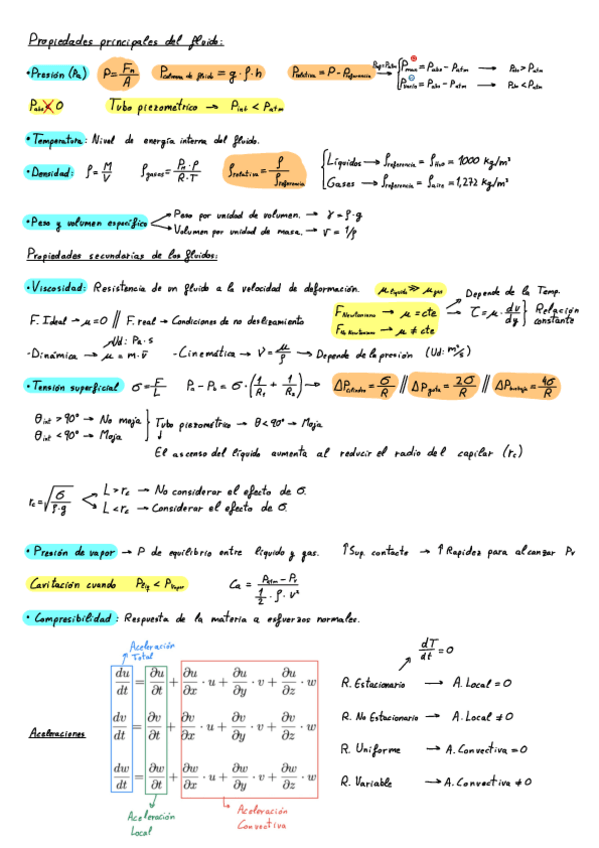 Propiedades principales del fluido:
• Presión (Pa) P = Fn/A Pcolumna de fluido = g · ρ · h Prelativa = P - Preferencia Pref = Patm { Pman = Pabs - Patm → Pabs > Patm
Pvacío = Pabs - Patm → Pabs < Patm
0 Tubo piezométrico → Pint < Patm
• Temperatura: Nivel de energía interna del fluido.
• Densidad: ρ = M/V ρgases = ρrelativa = ρ/ρreferencia { Líquidos → ρreferencia = ρH2O = 1000 kg/m³
Gases → ρreferencia = ρaire = 1,272 kg/m³
• Peso y volumen específico → Peso por unidad de volumen. → γ = ρ · g
→ Volumen por unidad de masa. → v = 1/ρ
Propiedades secundarias de los fluidos:
• Viscosidad: Resistencia de un fluido a la velocidad de deformación. μ líquido >> μ gas
Depende de la Temp.
F. Ideal → μ = 0 // F. real → Condiciones de no deslizamiento F Newtoniano → μ = cte → τ = μ · du/dy } Relación constante
F No Newtoniano → μ ≠ cte
Ud: Pa · s
- Dinámica → μ = m · v̄ - Cinemática → ν = μ/ρ → Depende de la presión (Ud: m²/s)
• Tensión superficial σ = F/L · (1/R1 + 1/R2) → ΔPcilindro = σ/R // ΔPgota = 2σ/R // ΔPburbuja = 4σ/R
θint > 90° → No moja
θint < 90° → Moja } Tubo piezométrico → θ < 90° → Moja
↓
El ascenso del líquido aumenta al reducir el radio del capilar (rc)
rc = √(σ/(ρ · g)) L > rc → No considerar el efecto de σ.
L < rc → Considerar el efecto de σ.
• Presión de vapor → P de equilibrio entre líquido y gas. ↑Sup. contacto → ↑ Rapidez para alcanzar Pv
Cavitación cuando Pliq < Pvapor Ca = (Patm - Pv)/(1/2 · ρ · v²)
• Compresibilidad: Respuesta de la materia a esfuerzos normales.
Aceleración Total
dT/dt = 0
du/dt = ∂u/∂t + ∂u/∂x · u + ∂u/∂y · v + ∂u/∂z · w
R. Estacionario → A. Local = 0
Aceleraciones
dv/dt = ∂v/∂t + ∂v/∂x · u + ∂v/∂y · v + ∂v/∂z · w
R. No Estacionario → A. Local ≠ 0
R. Uniforme → A. Convectiva = 0
dw/dt = ∂w/∂t + ∂w/∂x · u + ∂w/∂y · v + ∂w/∂z · w
R. Variable → A. Convectiva ≠ 0
Aceleración Local
Aceleración Convectiva